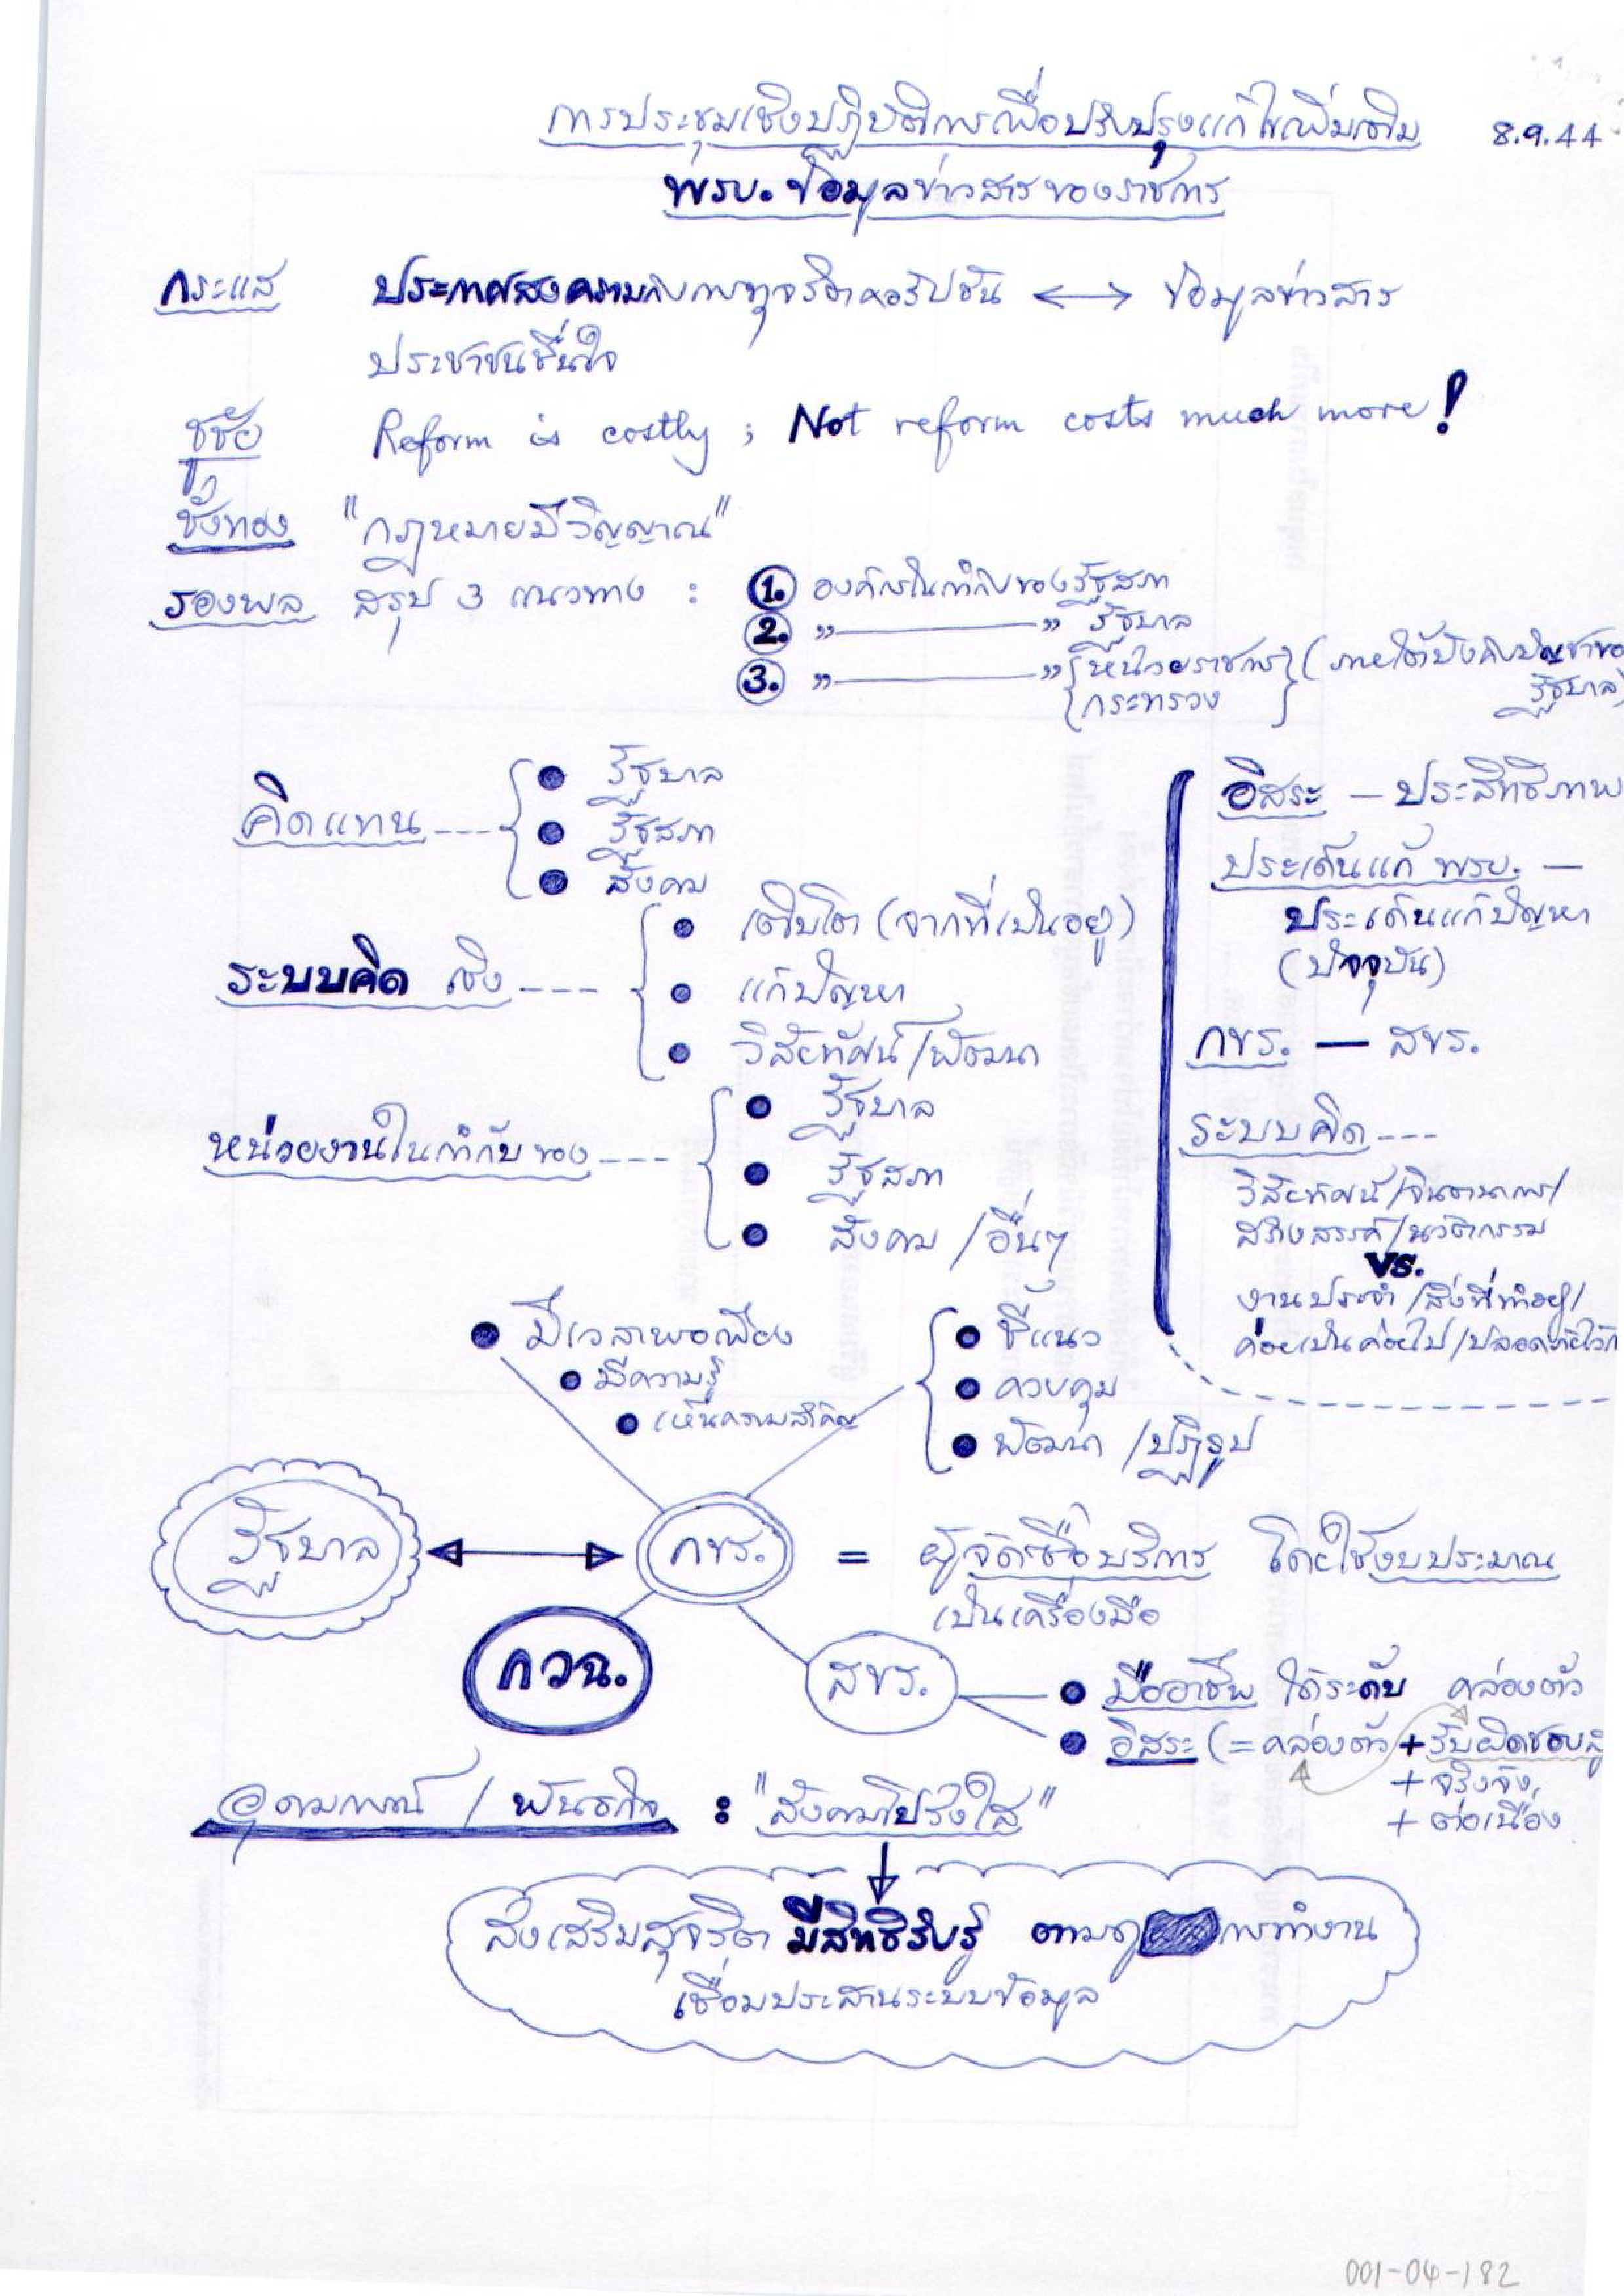 การประชุมเชิงปฏิบัติการเพื่อปรับปรุงแก้ไขเพิ่มเติม 8.9.44
พรบ. ข้อมูลข่าวสารของราชการ
กระแส ประกาศสงครามกับการทุจริตคอรัปชัน ⟷ ข้อมูลข่าวสาร
ประชาชนชื่นใจ
ชูชัย Reform is costly ; Not reform costs much more !
ชั่งทอง "กฎหมายมีวิญญาณ"
รองพล สรุป 3 แนวทาง : 1. องค์กรในกำกับของรัฐสภา
2. " ——— " รัฐบาล
3. " ——— " { หน่วยราชการ } (ภายใต้บังคับบัญชาของ
กระทรวง รัฐบาล)
คิดแทน ---
● รัฐบาล
● รัฐสภา
● สังคม
ระบบคิด เชิง ---
● เติบโต (จากที่เป็นอยู่)
● แก้ปัญหา
● วิสัยทัศน์ / พัฒนา
หน่วยงานในกำกับของ ---
● รัฐบาล
● รัฐสภา
● สังคม / อื่นๆ
อิสระ — ประสิทธิภาพ
ประเด็นแก้ พรบ. —
ประเด็นแก้ปัญหา
(ปัจจุบัน)
กขร. — สขร.
ระบบคิด ---
วิสัยทัศน์ / จินตนาการ /
สร้างสรรค์ / นวัตกรรม
VS.
งานประจำ / สิ่งที่ทำอยู่ /
ค่อยเป็นค่อยไป / ปลอดภัยไว้ก
● มีเวลาพอเพียง
● มีความรู้
● เห็นความสำคัญ
● ชี้แนว
● ควบคุม
● พัฒนา / ปฏิรูป
รัฐบาล ⟷ กขร. = ผู้จัดซื้อบริการ โดยใช้งบประมาณ
เป็นเครื่องมือ
กวฉ.
สขร.
● มืออาชีพ ได้ระดับ คล่องตัว
● อิสระ (= คล่องตัว + รับผิดชอบสู
+ จริงจัง
+ ต่อเนื่อง
อุดมการณ์ / พันธกิจ : "สังคมโปร่งใส"
ส่งเสริมสุจริต มีสิทธิรับรู้ ตามดู การทำงาน
เชื่อมประสานระบบข้อมูล
001-04-182